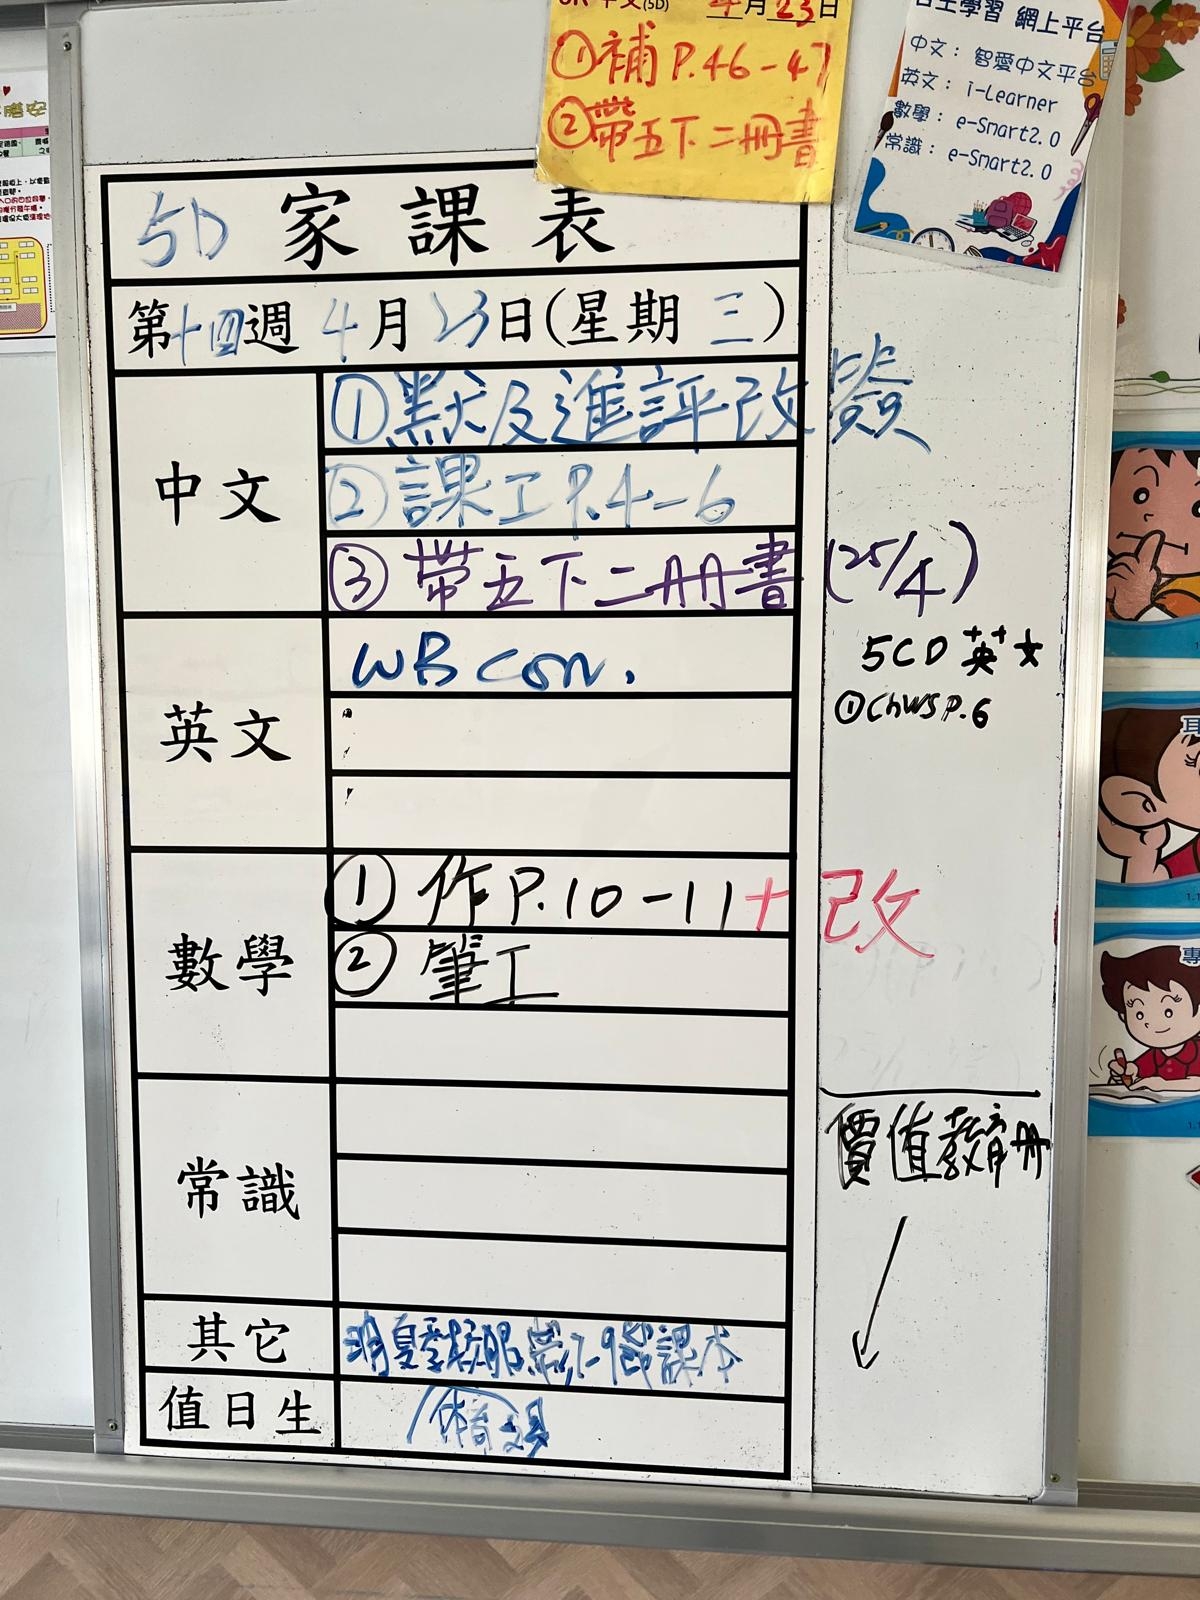 中文(5D) 4月23日
①補P.46-47
②帶五下二冊書
自主學習 網上平台
中文：智愛中文平台
英文：i-Learner
數學：e-Smart2.0
常識：e-Smart2.0
5D 家課表
第十四週 4月23日(星期三)
中文
①默及進評改簽
②課工P.4-6
③帶五下二冊書 (25/4)
英文
WB con.
5CD 英文
①ChWS P.6
數學
①作P.10-11+改
②筆工
常識
價值教育冊
其它
7-9節課本
值日生
體育